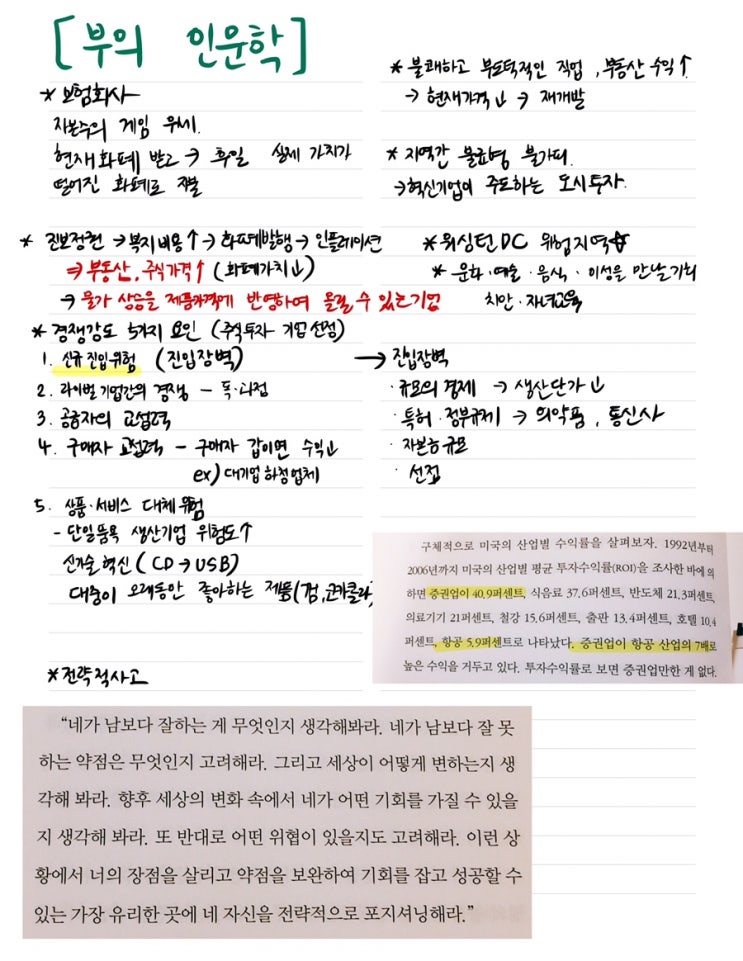 [부의 인문학]
* 보험회사
자본주의 게임 우세.
현재 화폐 받고 → 후일 실제 가치가
떨어진 화폐로 지불
* 불쾌하고 부도덕적인 직업, 부동산 수익↑
→ 현재가격↓ → 재개발
* 지역간 불균형 불가피.
→ 혁신기업이 주도하는 도시투자.
* 진보정권 → 복지비용↑ → 화폐발행 → 인플레이션
⇒ 부동산, 주식가격↑ (화폐가치↓)
→ 물가 상승을 제품가격에 반영하여 올릴 수 있는 기업
* 워싱턴DC 위험지역
* 문화·예술·음식·이성을 만날 기회
치안·자녀교육
* 경쟁강도 5가지 요인 (주식투자 기업 선정)
1. 신규 진입위험 (진입장벽)
2. 라이벌 기업간의 경쟁 - 독·과점
3. 공급자의 교섭력
4. 구매자 교섭력 - 구매자 갑이면 수익↓
ex) 대기업 하청업체
5. 상품·서비스 대체위험
- 단일품목 생산기업 위험도↑
신기술 혁신 (CD → USB)
대중이 오래동안 좋아하는 제품(껌, 코카콜라)
→ 진입장벽
· 규모의 경제 → 생산단가↓
· 특허·정부규제 → 의약품, 통신사
· 자본금규모
· 선점
구체적으로 미국의 산업별 수익률을 살펴보자. 1992년부터
2006년까지 미국의 산업별 평균 투자수익률(ROI)을 조사한 바에 의
하면 증권업이 40.9퍼센트, 식음료 37.6퍼센트, 반도체 21.3퍼센트,
의료기기 21퍼센트, 철강 15.6퍼센트, 출판 13.4퍼센트, 호텔 10.4
퍼센트, 항공 5.9퍼센트로 나타났다. 증권업이 항공 산업의 7배로
높은 수익을 거두고 있다. 투자수익률로 보면 증권업만한 게 없다.
* 전략적사고
“네가 남보다 잘하는 게 무엇인지 생각해봐라. 네가 남보다 잘 못
하는 약점은 무엇인지 고려해라. 그리고 세상이 어떻게 변하는지 생
각해 봐라. 향후 세상의 변화 속에서 네가 어떤 기회를 가질 수 있을
지 생각해 봐라. 또 반대로 어떤 위협이 있을지도 고려해라. 이런 상
황에서 너의 장점을 살리고 약점을 보완하여 기회를 잡고 성공할 수
있는 가장 유리한 곳에 네 자신을 전략적으로 포지셔닝해라.”